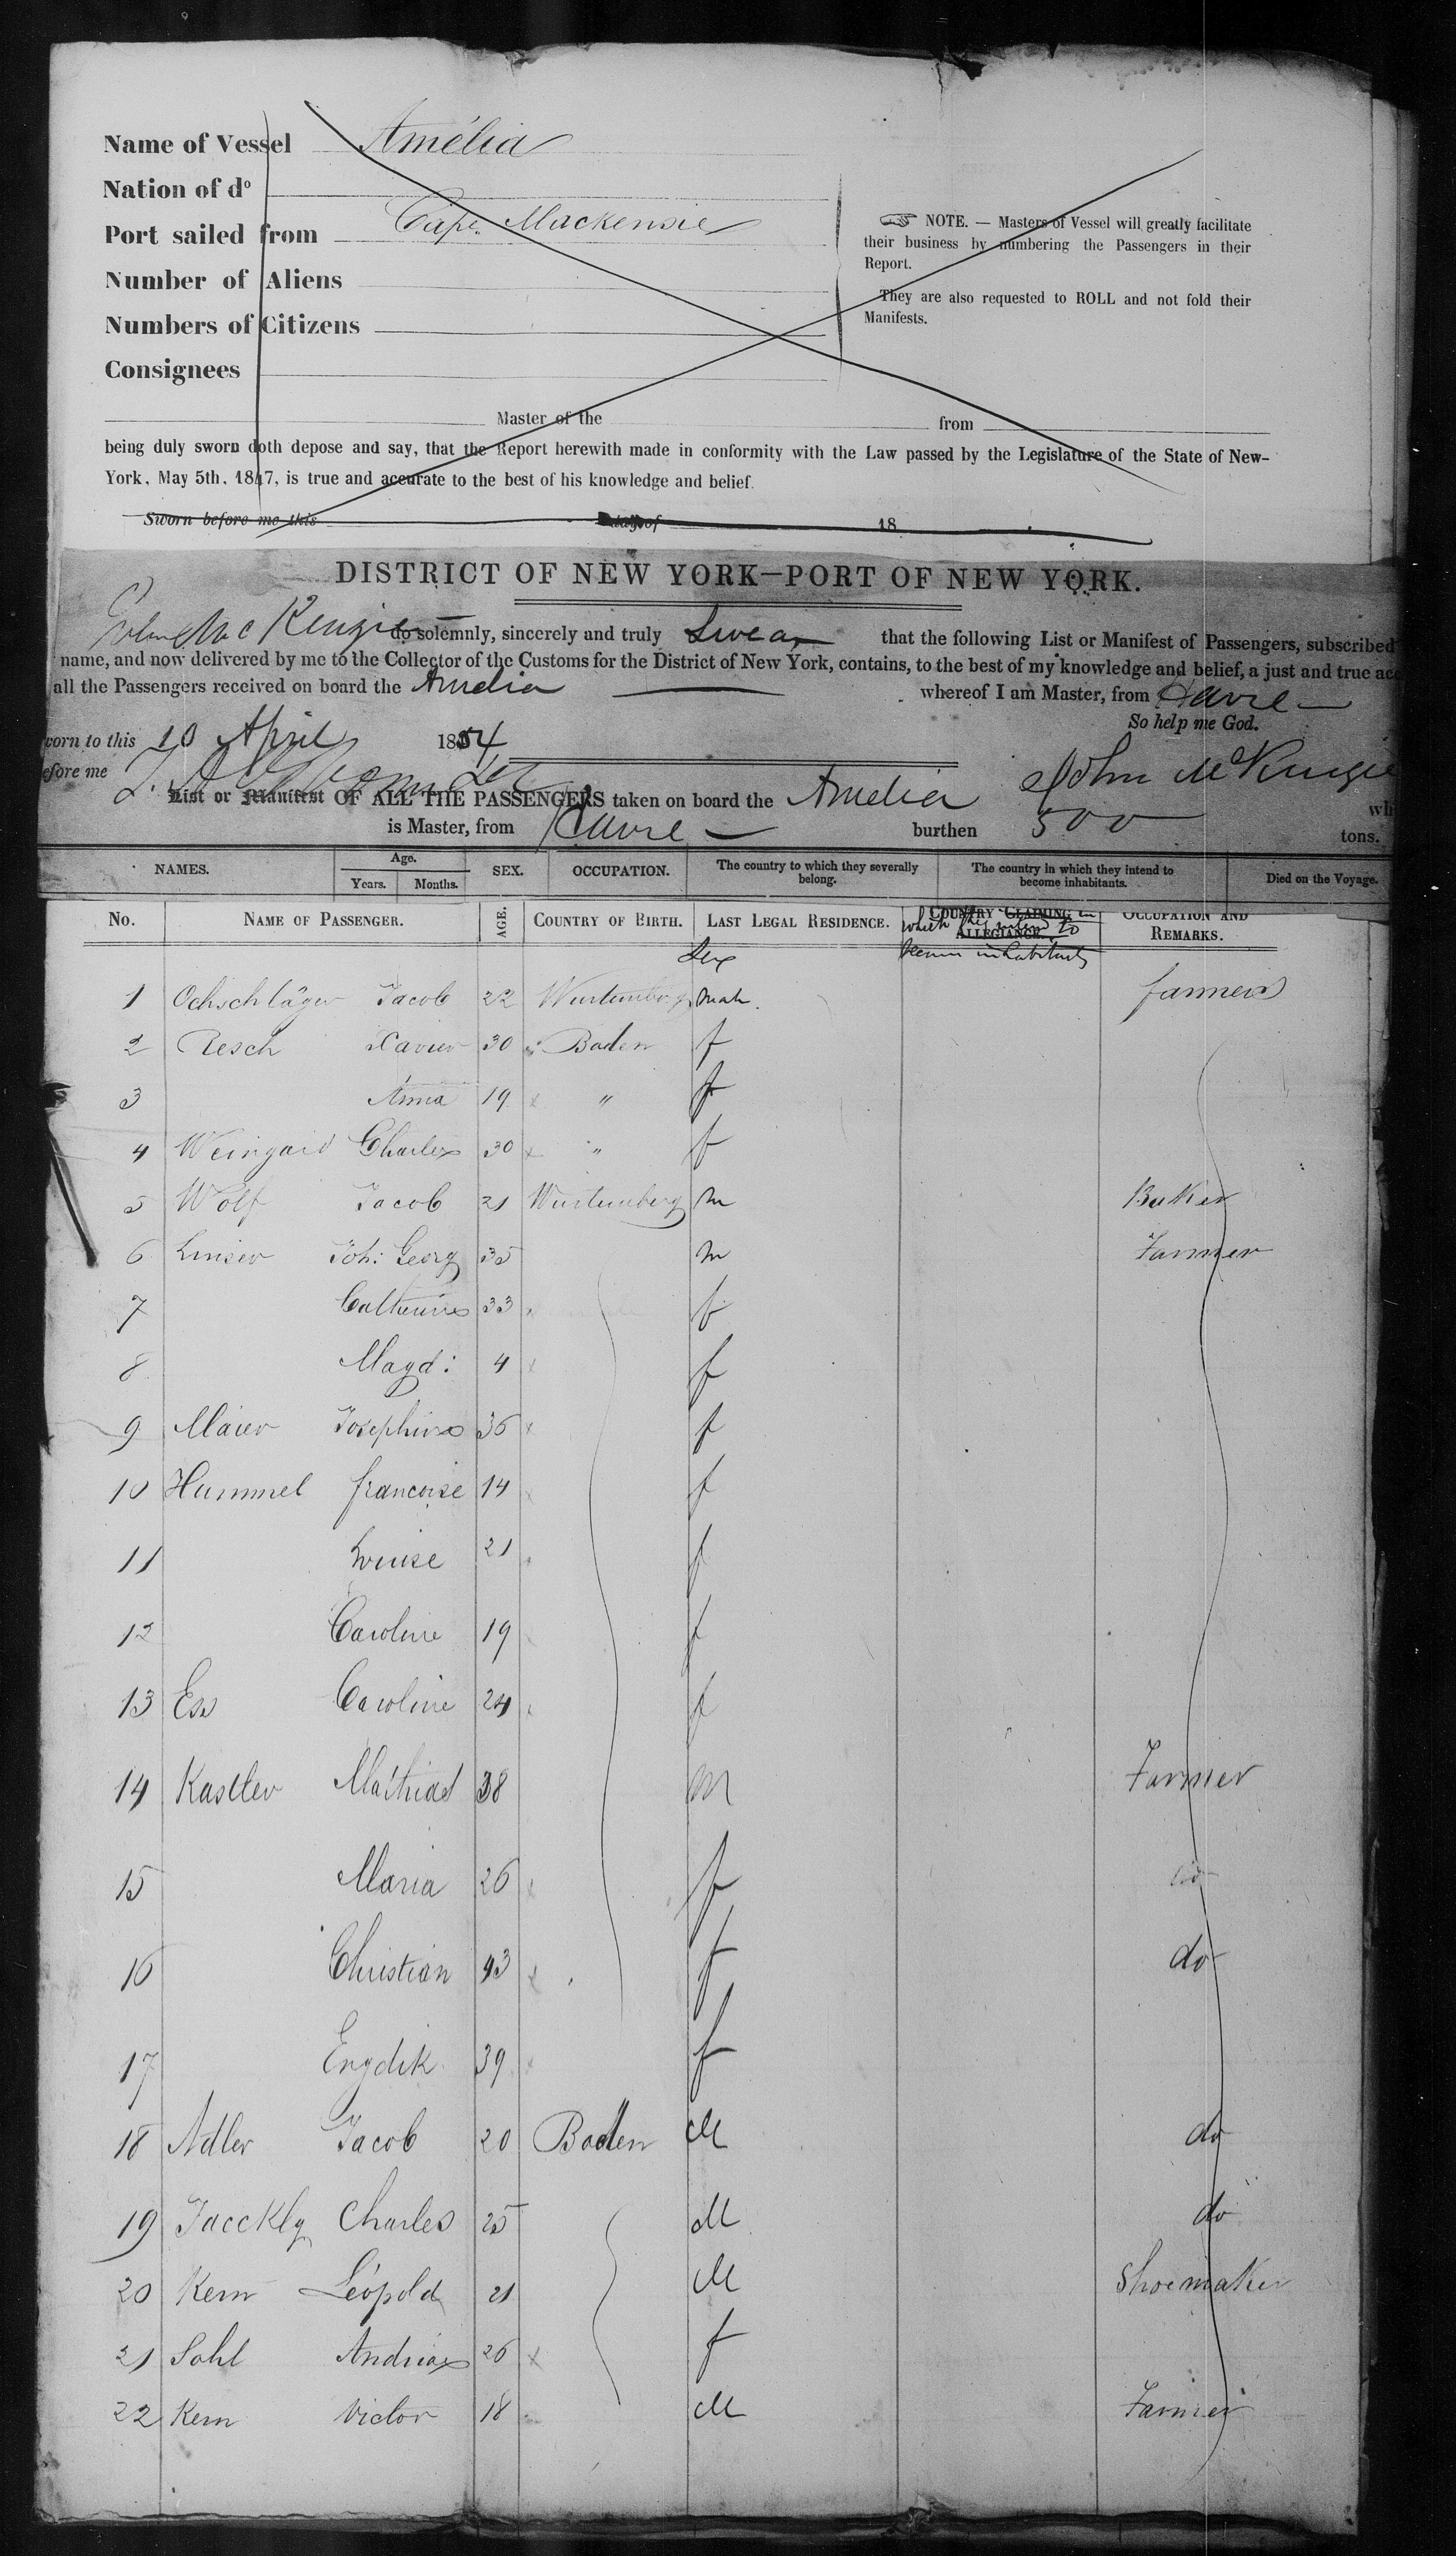 Name of Vessel Amélia
Nation of do
Port sailed from Cape. Mackensie
Number of Aliens
Numbers of Citizens
Consignees
NOTE. — Masters of Vessel will greatly facilitate
their business by numbering the Passengers in their
Report.
They are also requested to ROLL and not fold their
Manifests.
Master of the from
being duly sworn doth depose and say, that the Report herewith made in conformity with the Law passed by the Legislature of the State of New-
York, May 5th, 1847, is true and accurate to the best of his knowledge and belief.
Sworn before me this day of 18
DISTRICT OF NEW YORK—PORT OF NEW YORK.
Mc Kenzie do solemnly, sincerely and truly Swear that the following List or Manifest of Passengers, subscribed
name, and now delivered by me to the Collector of the Customs for the District of New York, contains, to the best of my knowledge and belief, a just and true acc
all the Passengers received on board the Amelia whereof I am Master, from Havre
So help me God.
worn to this 10 April 1854
efore me
John McKenzie
List or Manifest OF ALL THE PASSENGERS taken on board the Amelia wh
is Master, from Havre burthen 500 tons.
NAMES. Age. Years. Months. SEX. OCCUPATION. The country to which they severally belong. The country in which they intend to become inhabitants. Died on the Voyage.
No. NAME OF PASSENGER. AGE. COUNTRY OF BIRTH. LAST LEGAL RESIDENCE. COUNTRY CLAIMING ALLEGIANCE. OCCUPATION AND REMARKS.
Sex in which they intend to become inhabitants
1 Ochschläger Jacob 22 Wurtemberg male. farmer
2 Resch Xavier 30 Baden f
3 Anna 19 x " f
4 Weingard Charles 30 x " f
5 Wolf Jacob 21 Wurtemberg m Baker
6 Linser Joh: Georg 35 m Farmer
7 Catherine 33 f
8 Magd: 4 x f
9 Maier Josephine 36 x f
10 Hummel francoise 14 x f
11 Louise 21 f
12 Caroline 19 f
13 Ess Caroline 24 f
14 Kastler Mathias 38 m Farmer
15 Maria 26 x f do
16 Christian 43 x f do
17 Engdik 39 x f
18 Adler Jacob 20 Baden M do
19 Jaeckly Charles 25 M do
20 Kern Léopold 21 M Shoemaker
21 Sohl Andrias 26 x f
22 Kern Victor 18 M Farmer